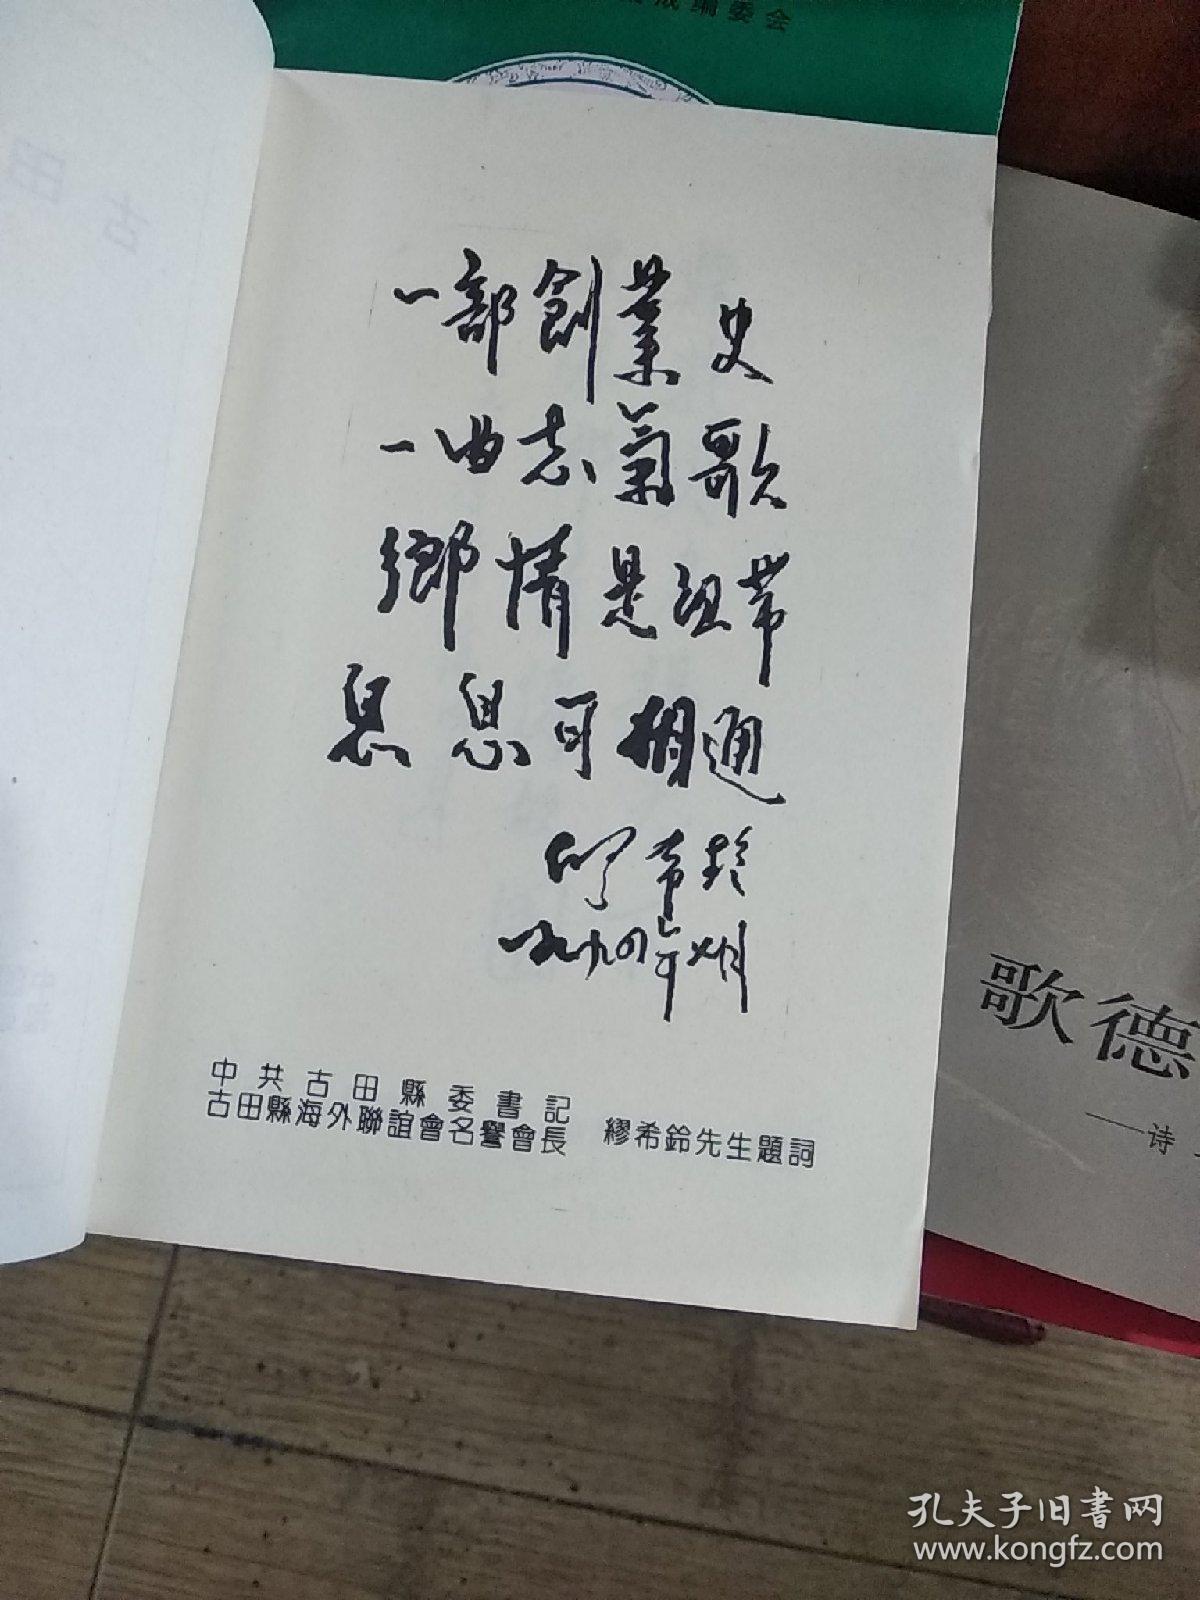 成编委会
古田
一部創業史
一曲志氣歌
鄉情是纽带
息息可相通
一九九四年七月
中共古田縣委書記
古田縣海外聯誼會名譽會長
繆希鈴先生題詞
歌德
——诗
孔夫子旧书网
www.kongfz.com